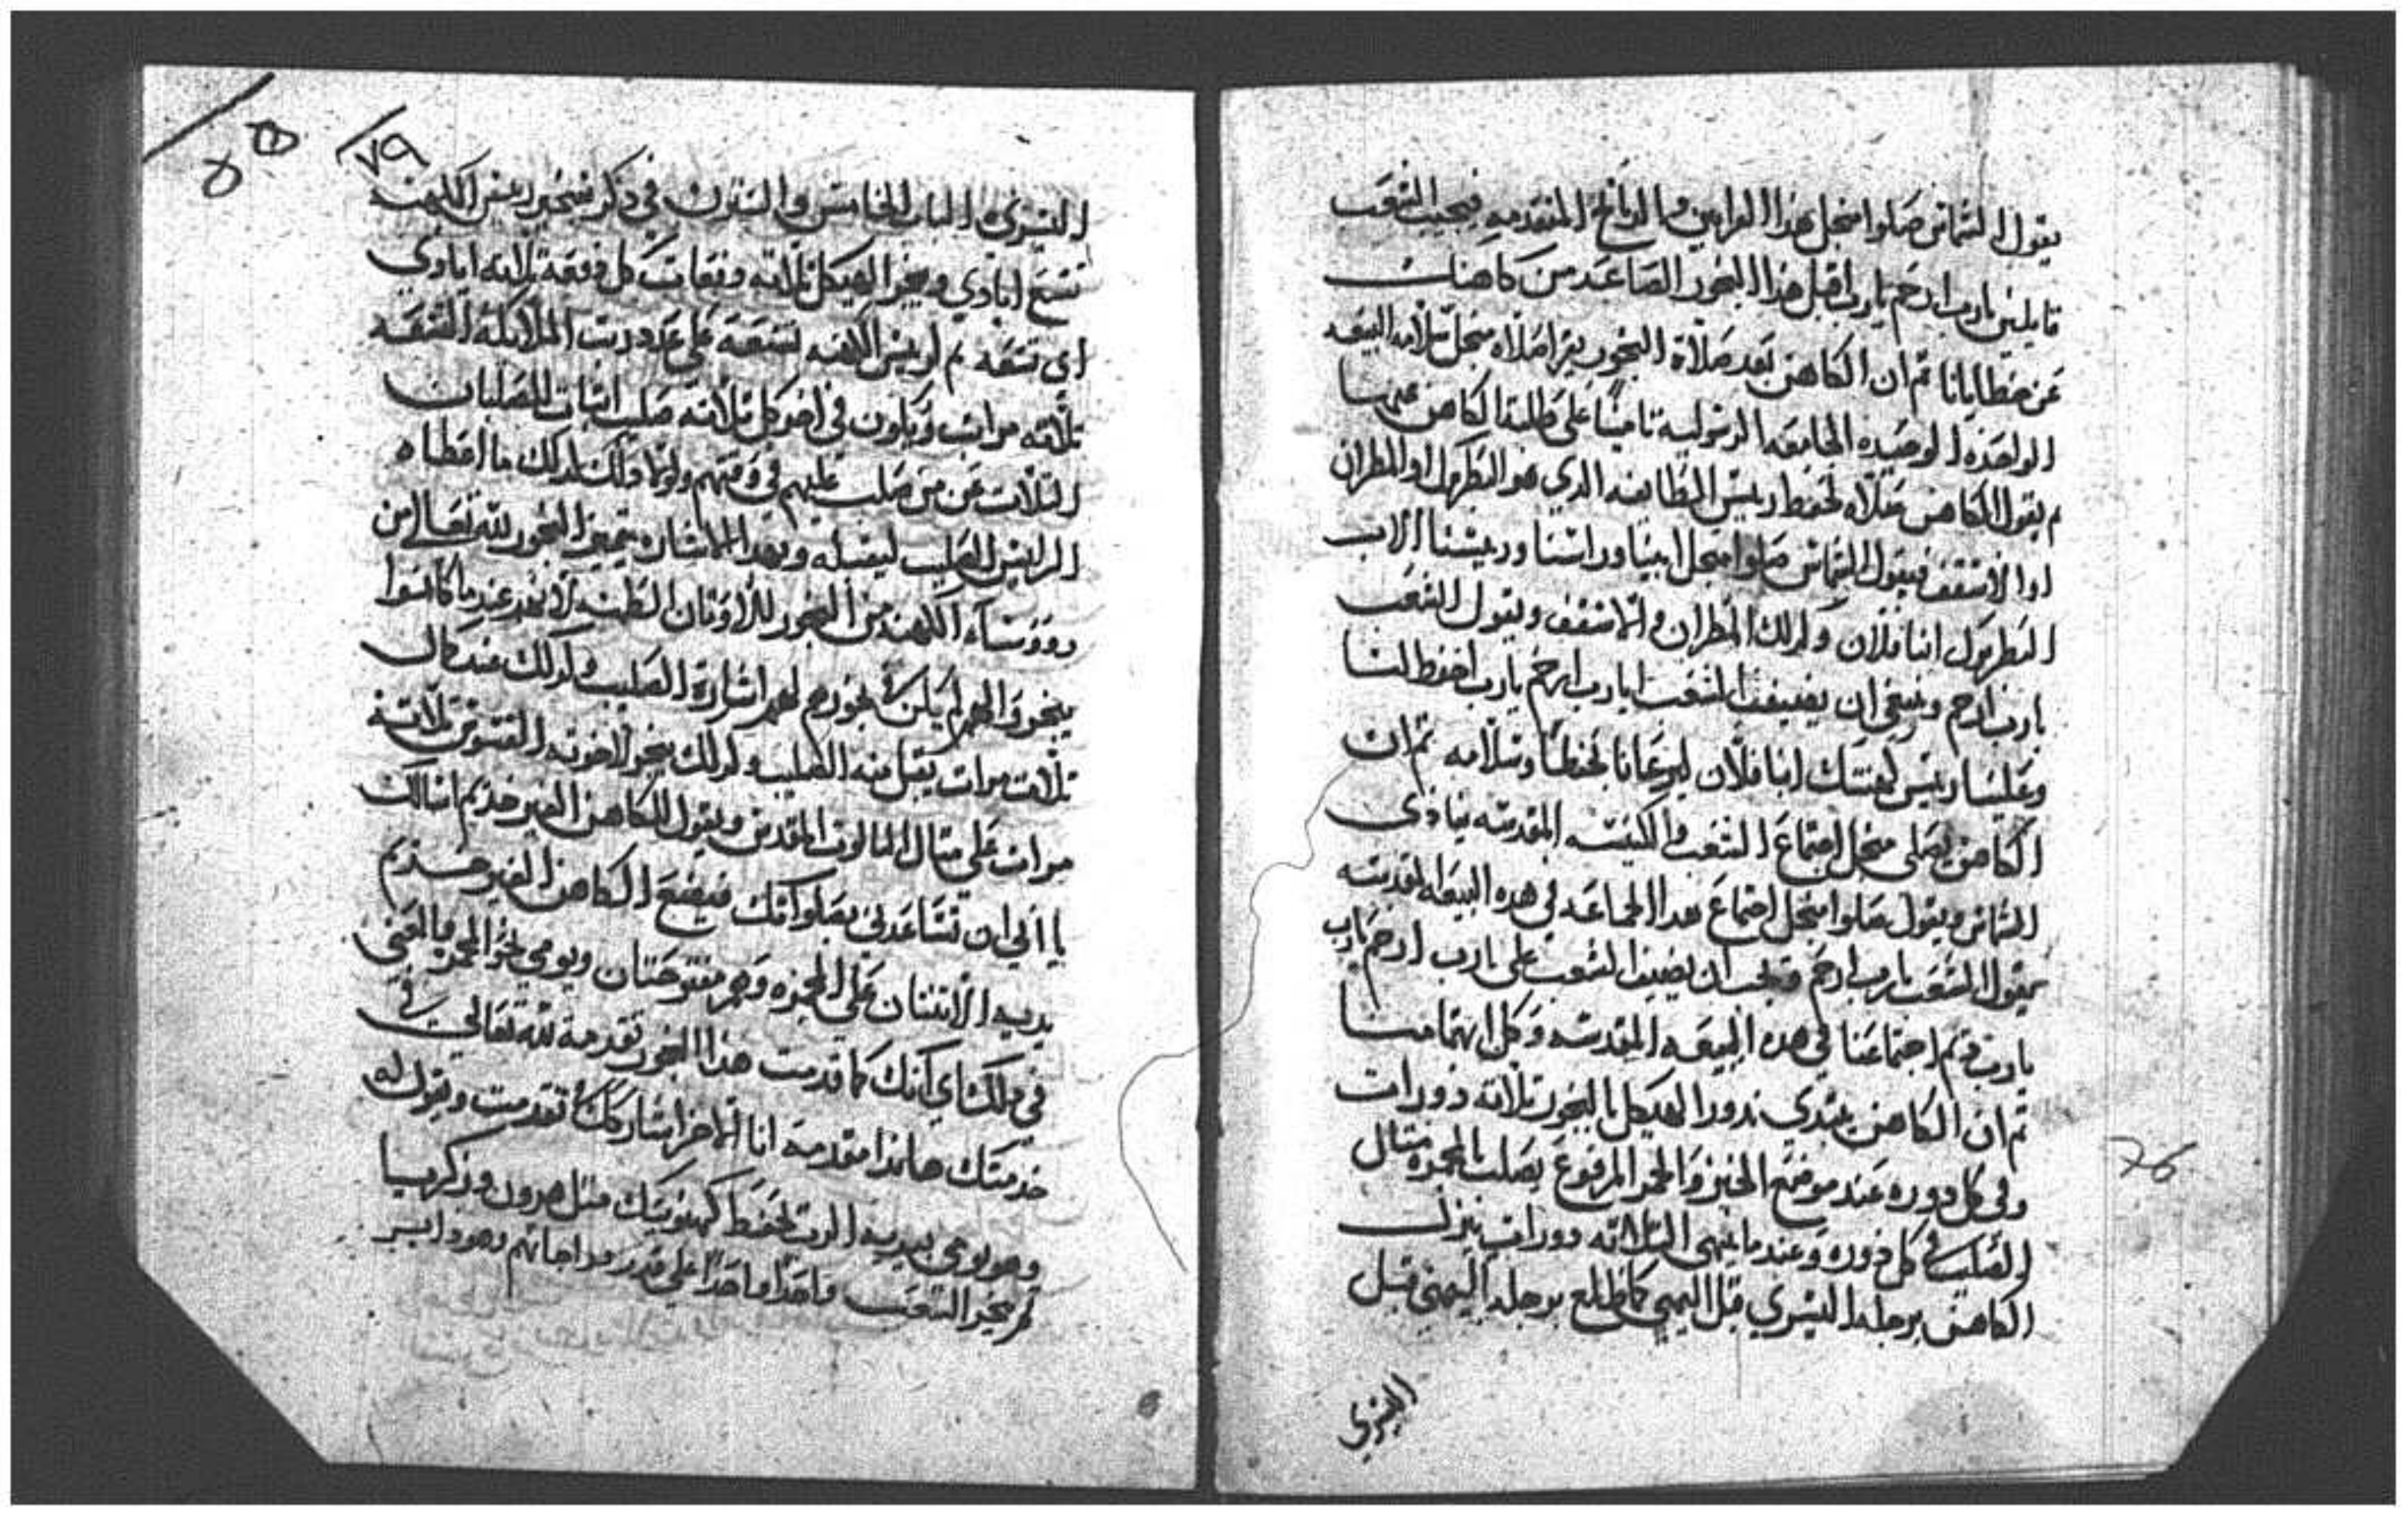 يقول الشماس صلوا من اجل هذا القرابين والقرائح المتقدمه فيجيب الشعب
قايلين يارب ارحم يارب اقبل هذا البخور الصاعد من كاهنك
عن خطايانا ثم ان الكاهن بعد صلاة البخور يقرا صلاه منجل سلامه البيعه
الواحده الوحيده الجامعه الرسوليه تامينًا على طلبة الكاهن عنها
ثم يقول الكاهن صلاه لحفظ رييس الطايفه الدي هو البطريرك او المطران
او الاسقف فيقول الشماس صلوا منجل ابينا وراسنا ورييسنا الاب
البطريرك انبا فلان وكدلك المطران والاسقف ويقول الشعب
يارب ارحم وينبغي ان يضيف الشعب ايارب ارحم يارب احفظ لنا
وعلينا رييس كهنتك انبا فلان ليرعانا بحفظنا وسلامه ثم ان
الكاهن يصلى منجل اجتماع الشعب والكنيسه المقدسه ينادى
الشماس ويقول صلوا منجل اجتماع هدا الجماعه في هده البيعه المقدسه
يقول الشعب يارب ارحم ويجب ان يضيف الشعب على يارب ارحم يارب
يارب قيم اجتماعنا في هده البيعه المقدسه وكل اهتمامنا
ثم ان الكاهن يبتدي يدور الهيكل بالبخور تلاته دورات
وفي كل دوره عند موضع الخبز والخمر المرفوع يصلب بالمجمره مثال
الصليب في كل دوره وعند ما ينهي التلاته دورات ينزل
الكاهن برجله اليسري قبل اليمني كما طلع برجله اليمنى قبل
اليسري
76
٧٩
اليسري الباب الخامس والستون في ذكر تبخير رييس الكهنه
تسع ايادي ويبخر الهيكل تلاته وقعات كل وقعة تلاته ايادي
اي تسعه ثم لرييس الكهنه تسعه على عدد رتب الملايكة التسعه
تلاته مراتب ويكون في اخر كل تلاته صلب اتبات الصلبان
التلات عن من صلب عليهم في وقتهم ولولا دلك لدلك ما اعطاه
الراييس الصليب ليقبله وبهدا الاشاره يتميز البخور لله تعالى من
رووساء الكهنه من البخور للاوتان الطغيه لانهم عند ما كانوا
يبخروا لهم لم يكن بخورهم لهم اشارة الصليب وكدلك عند كمال
تلات مرات يقبل منه الصليب وكدلك يبخر لاخوته القسوس تلاتة
مرات على متال التالوت المقدس ويقول للكاهن الغير خديم اسالك
يا ابي ان تساعدني بصلواتك فيضع الكاهن الغير خديم
يديه الاتنتان على المجمره وهم مفتوحتان ويومي نحو المجمر والمعنى
في دلك اي انك كما قدمت هذا البخور تقدمة لله تعالى في
خدمتك هاندا متقدمه انا الاخر اشاركك تقدمت ويقول له
وهو يومي بيديه الرب يحفظ كهنوتيك متل هرون وزكريا
ثم يبخر الشعب واحدًا واحدًا على قدر مراحاتهم وهو داير